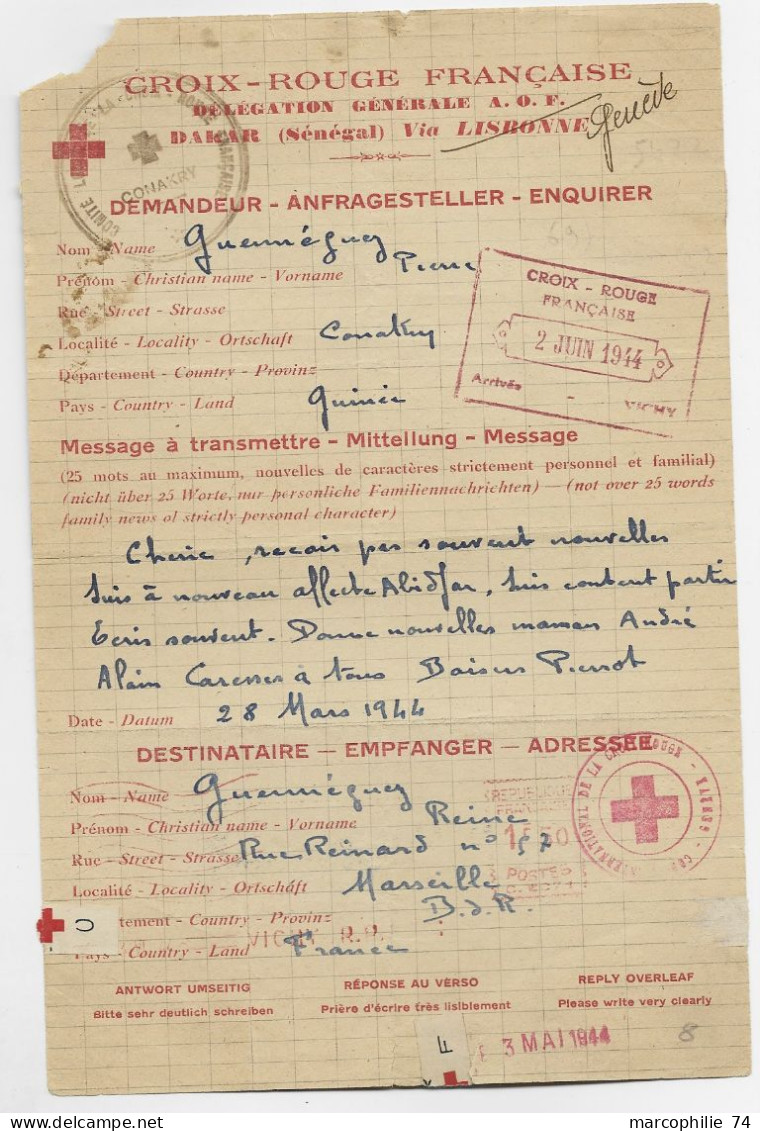 CROIX-ROUGE FRANÇAISE
DÉLÉGATION GÉNÉRALE A. O. F.
DAKAR (Sénégal) Via LISBONNE Genève
CONAKRY
DEMANDEUR - ANFRAGESTELLER - ENQUIRER
Nom - Name Guennéguez
Prénom - Christian name - Vorname Pierre
Rue - Street - Strasse
Localité - Locality - Ortschaft Conakry
Département - Country - Provinz
Pays - Country - Land Guinée
CROIX - ROUGE
FRANÇAISE
2 JUIN 1944
Arrivée - VICHY
Message à transmettre - Mittellung - Message
(25 mots au maximum, nouvelles de caractères strictement personnel et familial)
(nicht über 25 Worte, nur personliche Familiennachrichten) — (not over 25 words
family news of strictly personal character)
Cherie, recois pas souvent nouvelles
Suis à nouveau affecte Abidjan, suis content partir
Ecris souvent. Donne nouvelles maman André
Alain Caresses à tous Baisers Pierrot
Date - Datum 28 Mars 1944
DESTINATAIRE — EMPFANGER — ADRESSEE
Nom - Name Guennéguez
Prénom - Christian name - Vorname Reine
Rue - Street - Strasse Rue Reinard n° 57
Localité - Locality - Ortschaft Marseille
tement - Country - Provinz B.d.R.
Pays - Country - Land France
REPUBLIQUE
FRANÇAISE
POSTES
VICHY R.P.
ANTWORT UMSEITIG RÉPONSE AU VERSO REPLY OVERLEAF
Bitte sehr deutlich schreiben Prière d'écrire très lisiblement Please write very clearly
3 MAI 1944
8
marcophilie 74